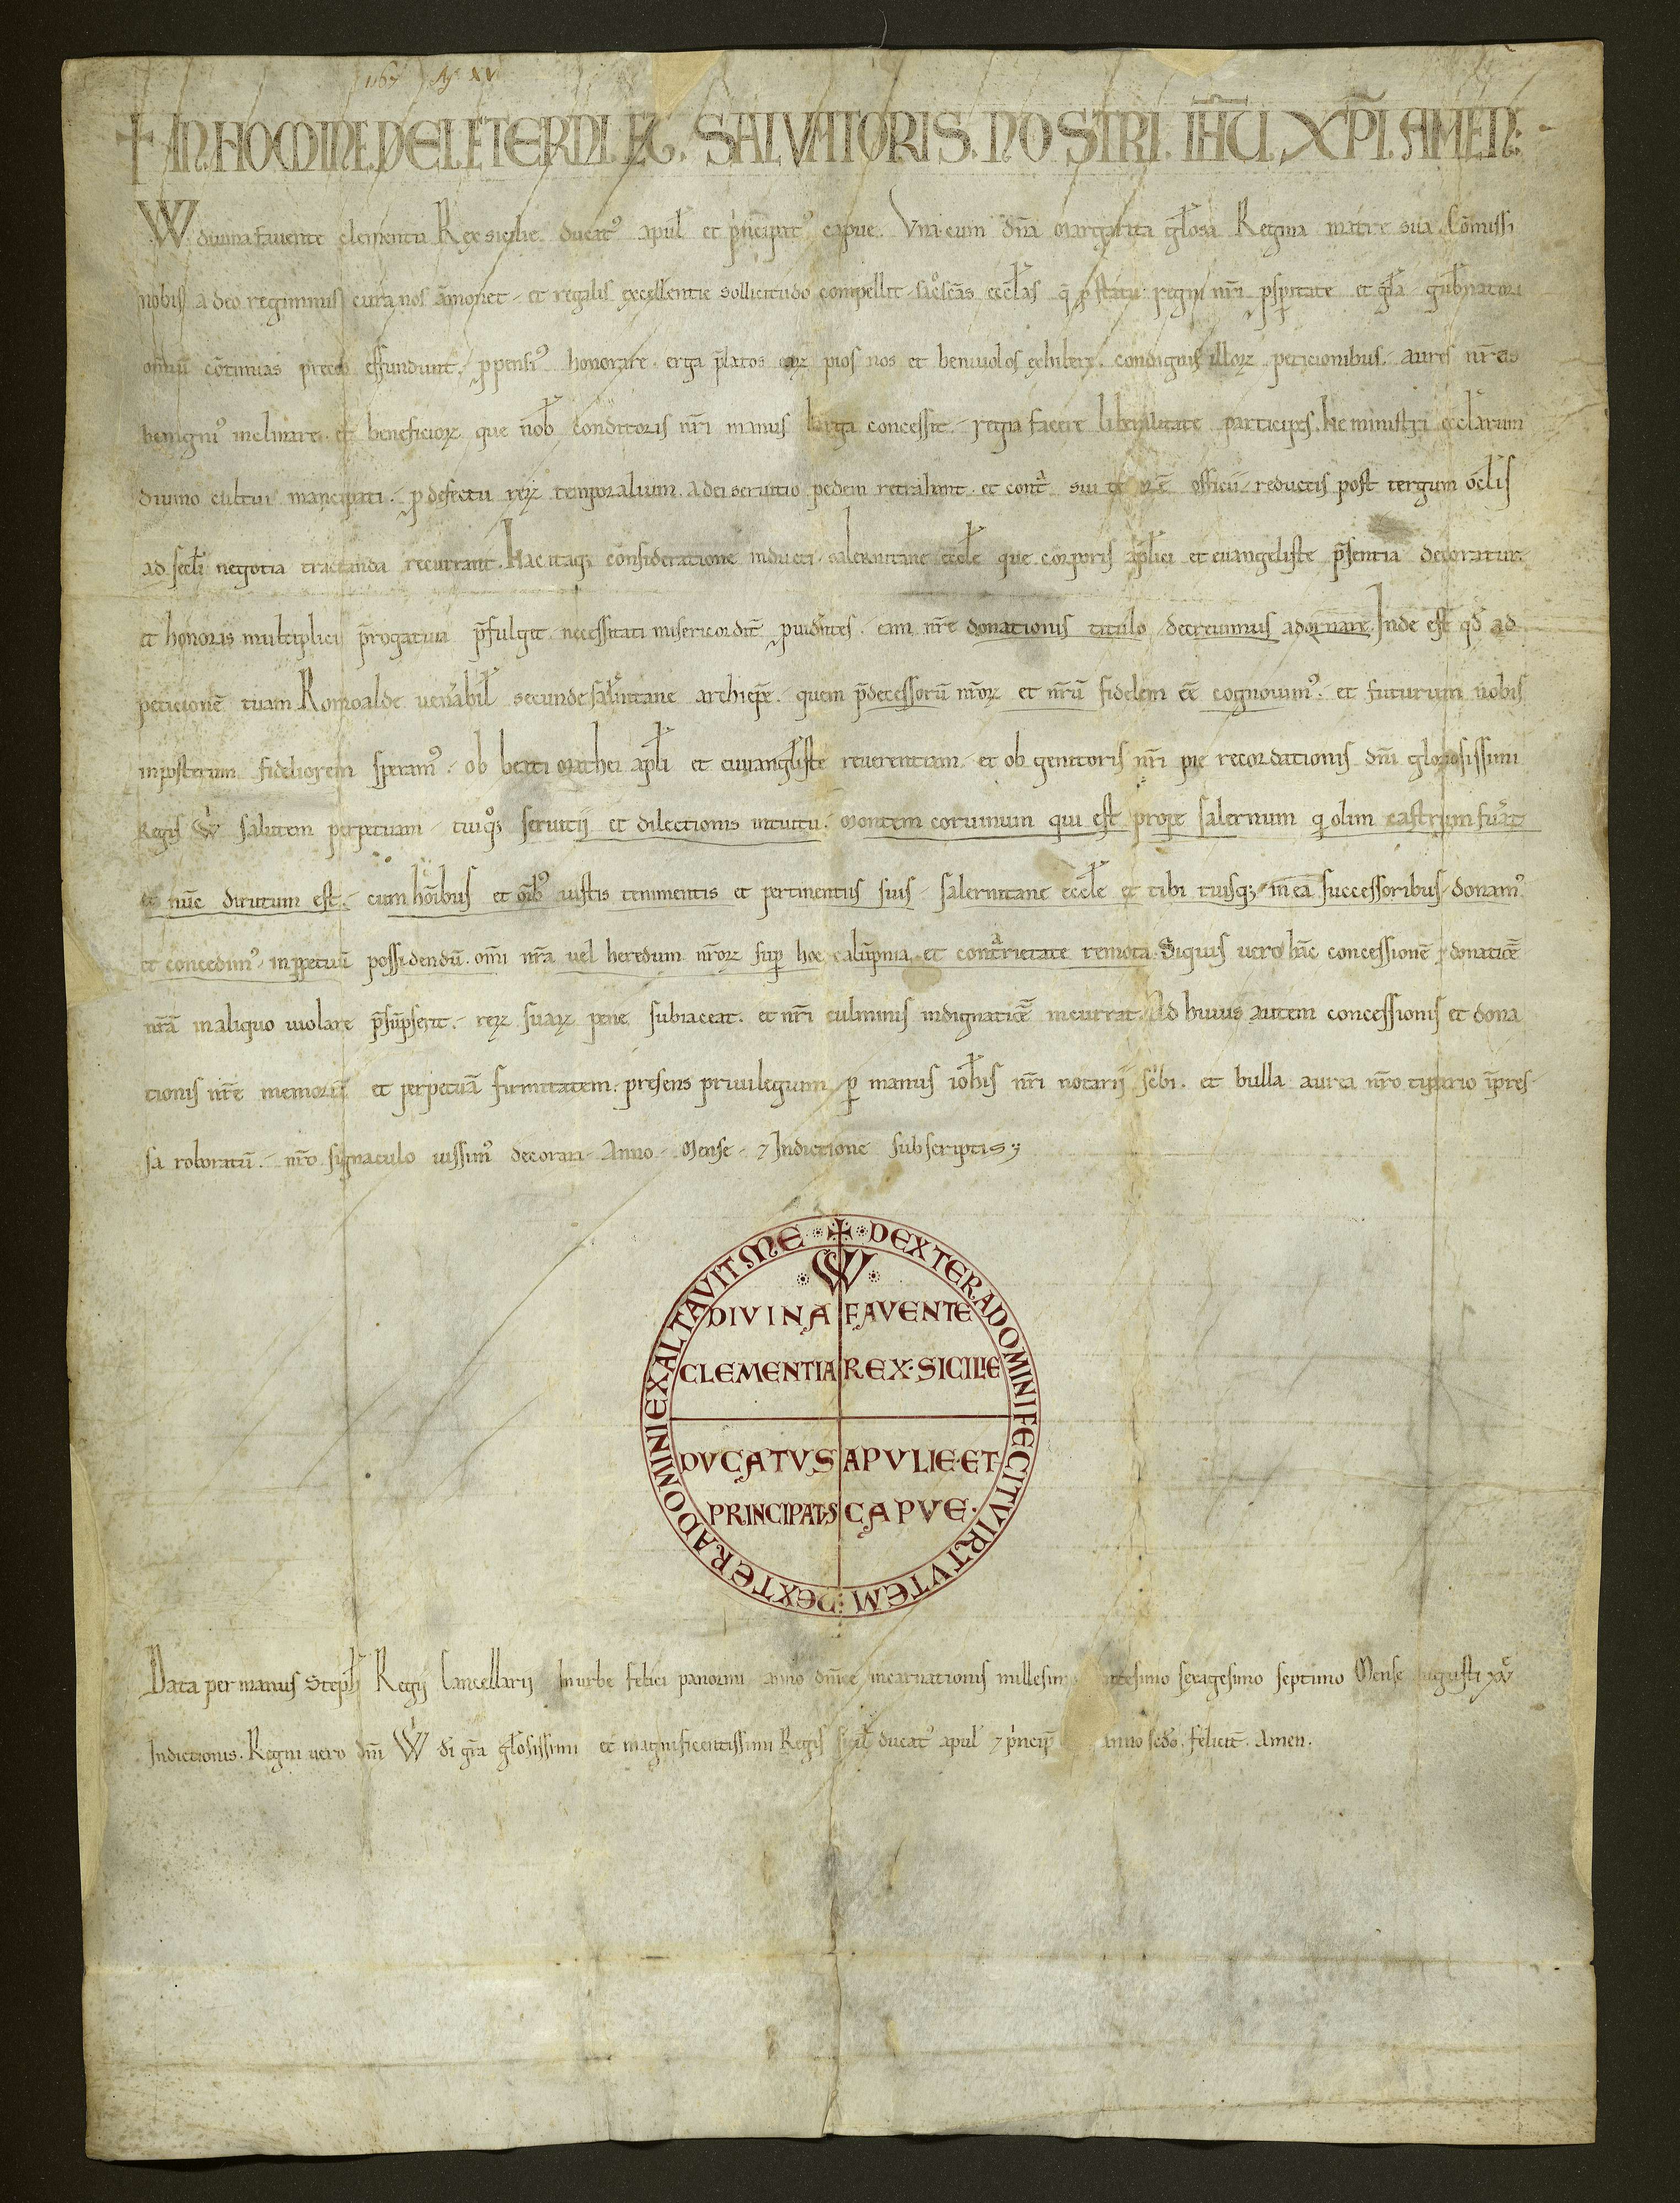 1167 Ag. XV
✝ IN NOMINE. DEI ETERNI. ET. SALVATORIS. NOSTRI. IHU̅. XP̅I. AMEN:
W. divina favente clementia Rex sicilie. ducatꝰ apul̅ et p̅ncipatꝰ capue. Vna cum dn̅a Margarita gl̅osa Regina matre sua. Co̅missi
nobis a deo regiminis cura nos a̅monet et regalis excellentie sollicitudo compellit sac̅sc̅as eccl̅as q̅ ꝓ statu regni nr̅i ꝓsꝑitate et gl̅a gub̅natori
omniu̅ co̅tinuas preces effundunt. ꝓpensiꝰ honorare. erga p̅latos eoꝝ pios nos et benivolos exhibere. condignis illoꝝ peticionibus. aures nr̅as
benigniꝰ inclinare. et beneficioꝝ que nob̅ conditoris nr̅i manus larga concessit. regia facere liberalitate participes. Ne ministri eccl̅arum
divino cultui mancipati. ꝓ defectu reꝝ temporalium. a dei servitio pedem retrahant. et cont̅ sui officii reductis post tergum oc̅lis
ad sec̅li negotia tractanda recurrant. Hac itaqꝫ consideratione inducti. salernitane eccl̅e que corporis ap̅lici et evangeliste p̅sentia decoratur
et honoris multiplici p̅rogativa p̅fulget necessitati misericordit̅ ꝓvid̅ntes. eam nr̅e donationis titulo decrevimus adornare. Inde est qd̅ ad
peticione̅ tuam Romoalde ven̅abil̅ secunde sal̅nitane archiep̅e. quem p̅decessoru̅ nr̅oꝝ et nr̅u̅ fidelem ee̅ cognovimꝰ. et futurum nobis
inposterum fideliorem speramꝰ. ob beati Mathei apl̅i et euvangl̅iste reverentiam. et ob genitoris nr̅i pie recordationis dn̅i gloriosissimi
Regis W̅ salutem perpetuam tuiqꝫ servitij et dilectionis intuitu. Montem corvinum qui est prope salernum q̅ olim castrum fu̅at
et nu̅c dirutum est. cum ho̅ibus et om̅ibꝰ iustis tenimentis et pertinentiis suis. salernitane eccl̅e et tibi tuisqꝫ in ea successoribus donamꝰ
et concedimꝰ inꝑpetuu̅ possidendu̅. omni nr̅a vel heredum nr̅oꝝ suꝑ hoc calu̅pnia. et contrarietate remota. Siquis vero ha̅c concessione̅ ⁊ donatioe̅
nr̅a̅ in aliquo violare p̅su̅pserit. reꝝ suaꝝ pene subiaceat. et nr̅i culminis indignatioe̅ incurrat. Ad huius autem concessionis et dona
tionis nr̅e memoria̅ et perpetua̅ firmitatem. presens privilegium ꝑ manus ioh̅is nr̅i notarij sc̅bi. et bulla aurea nr̅o tipario i̅pres
sa roboratu̅. nr̅o signaculo iussimꝰ decorari. Anno. Mense. ⁊ Indictione subscriptis
✝ DEXTERA DOMINI FECIT VIRTVTEM: DEXTERA DOMINI EXALTAVIT ME
W
DIVINA FAVENTE
CLEMENTIA REX·SICILIE
DVCATVS APVLIE·ET·
PRINCIPATS CAPVE·
Data per manus Steph̅ Regij Cancellarij In urbe felici panormi anno dn̅ice incarnationis millesimo centesimo sexagesimo septimo Mense augusti xv̅
Indictionis. Regni vero dn̅i W̅ di̅ gr̅a gl̅osissimi et magnificentissimi Regis sicil̅ ducatꝰ apul̅ ⁊ p̅ncip̅ anno scd̅o. felicit̅. Amen.